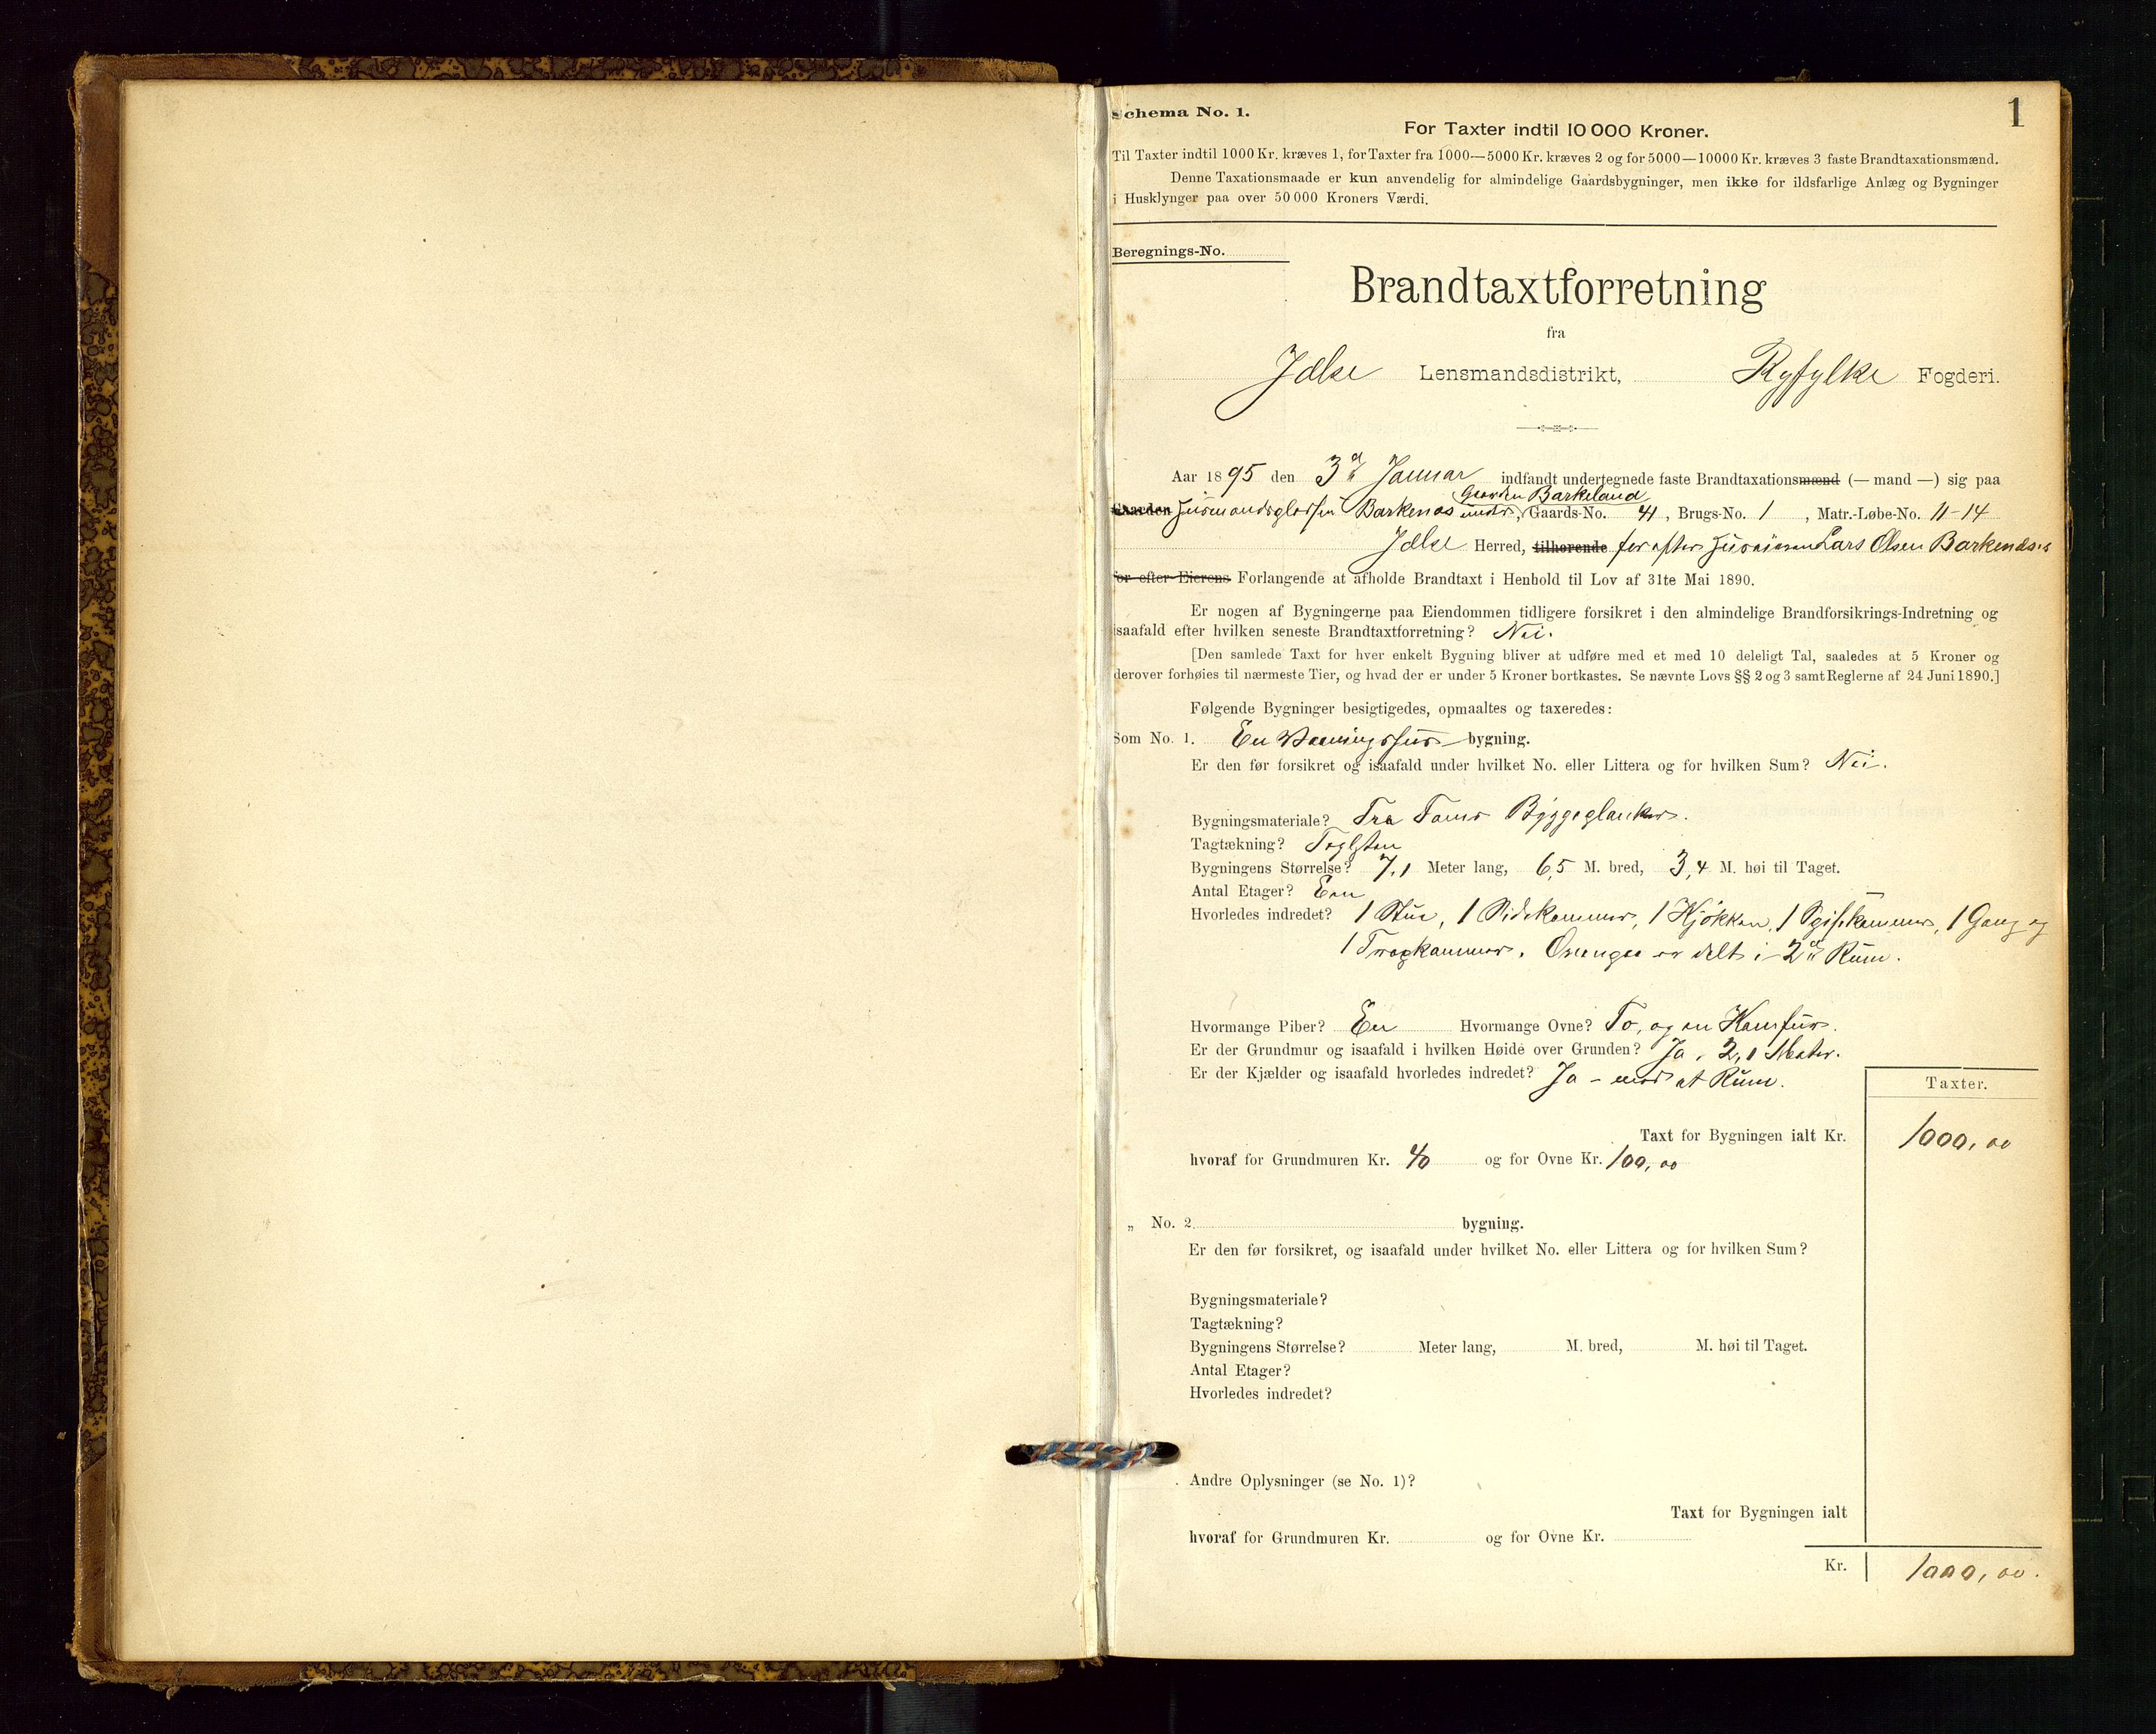 1
Schema No. 1.
For Taxter indtil 10 000 Kroner.
Til Taxter indtil 1000 Kr. kræves 1, for Taxter fra 1000—5000 Kr. kræves 2 og for 5000—10000 Kr. kræves 3 faste Brandtaxationsmænd.
Denne Taxationsmaade er kun anvendelig for almindelige Gaardsbygninger, men ikke for ildsfarlige Anlæg og Bygninger
i Husklynger paa over 50 000 Kroners Værdi.
Beregnings-No.
Brandtaxtforretning
fra
Jælse Lensmandsdistrikt, Ryfylke Fogderi.
Aar 1895 den 3d Januar indfandt undertegnede faste Brandtaxationsmænd (— mand —) sig paa
Gaarden Barkeland
Gaarden Husmandspladsen Barkenæs under, Gaards-No. 41, Brugs-No. 1, Matr.-Løbe-No. 11-14
Jælse Herred, tilhørende for efter Huseieren Lars Olsen Barkenæs's
for efter Eierens Forlangende at afholde Brandtaxt i Henhold til Lov af 31te Mai 1890.
Er nogen af Bygningerne paa Eiendommen tidligere forsikret i den almindelige Brandforsikrings-Indretning og
isaafald efter hvilken seneste Brandtaxtforretning? Nei.
[Den samlede Taxt for hver enkelt Bygning bliver at udføre med et med 10 deleligt Tal, saaledes at 5 Kroner og
derover forhøies til nærmeste Tier, og hvad der er under 5 Kroner bortkastes. Se nævnte Lovs §§ 2 og 3 samt Reglerne af 24 Juni 1890.]
Følgende Bygninger besigtigedes, opmaaltes og taxeredes:
Som No. 1. En Vaaningshus bygning.
Er den før forsikret og isaafald under hvilket No. eller Littera og for hvilken Sum? Nei.
Bygningsmateriale? Træ Toms Byggeplanker.
Tagtækning? Teglsten
Bygningens Størrelse? 7,1 Meter lang, 6,5 M. bred, 3,4 M. høi til Taget.
Antal Etager? Een
Hvorledes indredet? 1 Stue, 1 Sidekammer, 1 Kjøkken, 1 Spisekammer, 1 Gang og
1 Trapkammer. Ovenpaa er delt i 2de Rum.
Hvormange Piber? En Hvormange Ovne? To, og en Komfur.
Er der Grundmur og isaafald i hvilken Høide over Grunden? Ja, 2,1 Meter.
Er der Kjælder og isaafald hvorledes indredet? Ja - med et Rum.
Taxter.
Taxt for Bygningen ialt Kr. 1000,00
hvoraf for Grundmuren Kr. 40 og for Ovne Kr. 100,00
„ No. 2. bygning.
Er den før forsikret, og isaafald under hvilket No. eller Littera og for hvilken Sum?
Bygningsmateriale?
Tagtækning?
Bygningens Størrelse? Meter lang, M. bred, M. høi til Taget.
Antal Etager?
Hvorledes indredet?
Andre Oplysninger (se No. 1)?
Taxt for Bygningen ialt
hvoraf for Grundmuren Kr. og for Ovne Kr.
Kr. 1000,00.